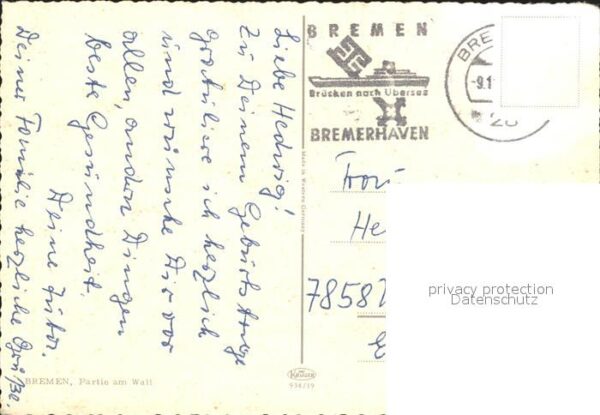 Liebe Hedwig!
Zu Deinem Geburtstage
gratuliere ich herzlich
und wünsche Dir vor
allen anderen Dingen
beste Gesundheit.
Deine
Deiner Familie herzliche Grüße.
BREMEN
Brücken nach Übersee
BREMERHAVEN
BRE
-9.1
28
Frau
He
7858
privacy protection
Datenschutz
Made in Western Germany
KRÜGER
934/19
BREMEN, Partie am Wall